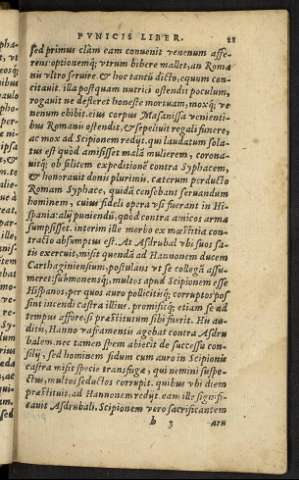 PVNICIS LIBER. 22
sed primus clàm eam conuenit venenum affe-
rens: optionemq; vtrum bibere mallet, an Roma
nis vltro seruire. & hoc tantũ dicto, equum con
citauit. illa postquam nutrici ostendit poculum,
rogauit ne defleret honeste mortuam, moxq; ve
nenum ebibit. eius corpus Masanissa venienti-
bus Romanis ostendit, & sepeliuit regali funere,
ac mox ad Scipionem redijt. qui laudatum sola-
tus est quòd amisisset malã mulierem, corona-
uitq; ob felicem expeditionẽ contra Syphacem,
& honorauit donis plurimis. cæterum perducto
Romam Syphace, quidã censebant seruandum
hominem, cuius fideli opera vsi fuerant in Hi-
spania: alij puniendũ, quòd contra amicos arma
sumpsisset. interim ille morbo ex mœstitia con-
tracto absumptus est. At Asdrubal vbi suos sa-
tis exercuit, misit quendã ad Hannonem ducem
Carthaginiensium, postulans vt se collegã assu-
meret: submonensq; multos apud Scipionem esse
Hispanos, per quos auro pollicitisq; corruptos pos
sint incendi castra illius. promisitq; etiam se ad
tempus affore, si præstitutum sibi fuerit. His au-
ditis, Hanno vaframentis agebat contra Asdru
balem. nec tamen spem abiecit de successu con-
silij, sed hominem fidum cum auro in Scipionis
castra misit specie transfugæ, qui nemini suspe-
ctus, multos seductos corrupit. quibus vbi diem
præstituit, ad Hannonem redijt. eam ille signifi-
cauit Asdrubali. Scipionem vero sacrificantem
b 3